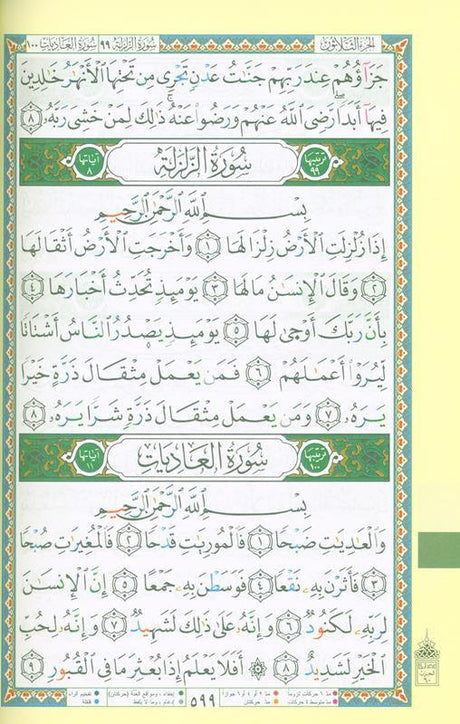 الجزء الثلاثون سورة الزلزلة ٩٩ سورة العاديات ١٠٠
جَزَآؤُهُمْ عِندَ رَبِّهِمْ جَنَّٰتُ عَدْنٍ تَجْرِى مِن تَحْتِهَا ٱلْأَنْهَٰرُ خَٰلِدِينَ
فِيهَآ أَبَدًا رَّضِىَ ٱللَّهُ عَنْهُمْ وَرَضُوا۟ عَنْهُ ذَٰلِكَ لِمَنْ خَشِىَ رَبَّهُۥ ٨
ترتيبها ٩٩ سُورَةُ الزَّلْزَلَةِ آياتها ٨
بِسْمِ ٱللَّهِ ٱلرَّحْمَٰنِ ٱلرَّحِيمِ
إِذَا زُلْزِلَتِ ٱلْأَرْضُ زِلْزَالَهَا ١ وَأَخْرَجَتِ ٱلْأَرْضُ أَثْقَالَهَا
٢ وَقَالَ ٱلْإِنسَٰنُ مَا لَهَا ٣ يَوْمَئِذٍ تُحَدِّثُ أَخْبَارَهَا ٤
بِأَنَّ رَبَّكَ أَوْحَىٰ لَهَا ٥ يَوْمَئِذٍ يَصْدُرُ ٱلنَّاسُ أَشْتَاتًا
لِّيُرَوْا۟ أَعْمَٰلَهُمْ ٦ فَمَن يَعْمَلْ مِثْقَالَ ذَرَّةٍ خَيْرًا
يَرَهُۥ ٧ وَمَن يَعْمَلْ مِثْقَالَ ذَرَّةٍ شَرًّا يَرَهُۥ ٨
ترتيبها ١٠٠ سُورَةُ العَادِيَاتِ آياتها ١١
بِسْمِ ٱللَّهِ ٱلرَّحْمَٰنِ ٱلرَّحِيمِ
وَٱلْعَٰدِيَٰتِ ضَبْحًا ١ فَٱلْمُورِيَٰتِ قَدْحًا ٢ فَٱلْمُغِيرَٰتِ صُبْحًا
٣ فَأَثَرْنَ بِهِۦ نَقْعًا ٤ فَوَسَطْنَ بِهِۦ جَمْعًا ٥ إِنَّ ٱلْإِنسَٰنَ
لِرَبِّهِۦ لَكَنُودٌ ٦ وَإِنَّهُۥ عَلَىٰ ذَٰلِكَ لَشَهِيدٌ ٧ وَإِنَّهُۥ لِحُبِّ
ٱلْخَيْرِ لَشَدِيدٌ ٨ ۞ أَفَلَا يَعْلَمُ إِذَا بُعْثِرَ مَا فِى ٱلْقُبُورِ ٩
٥٩٩